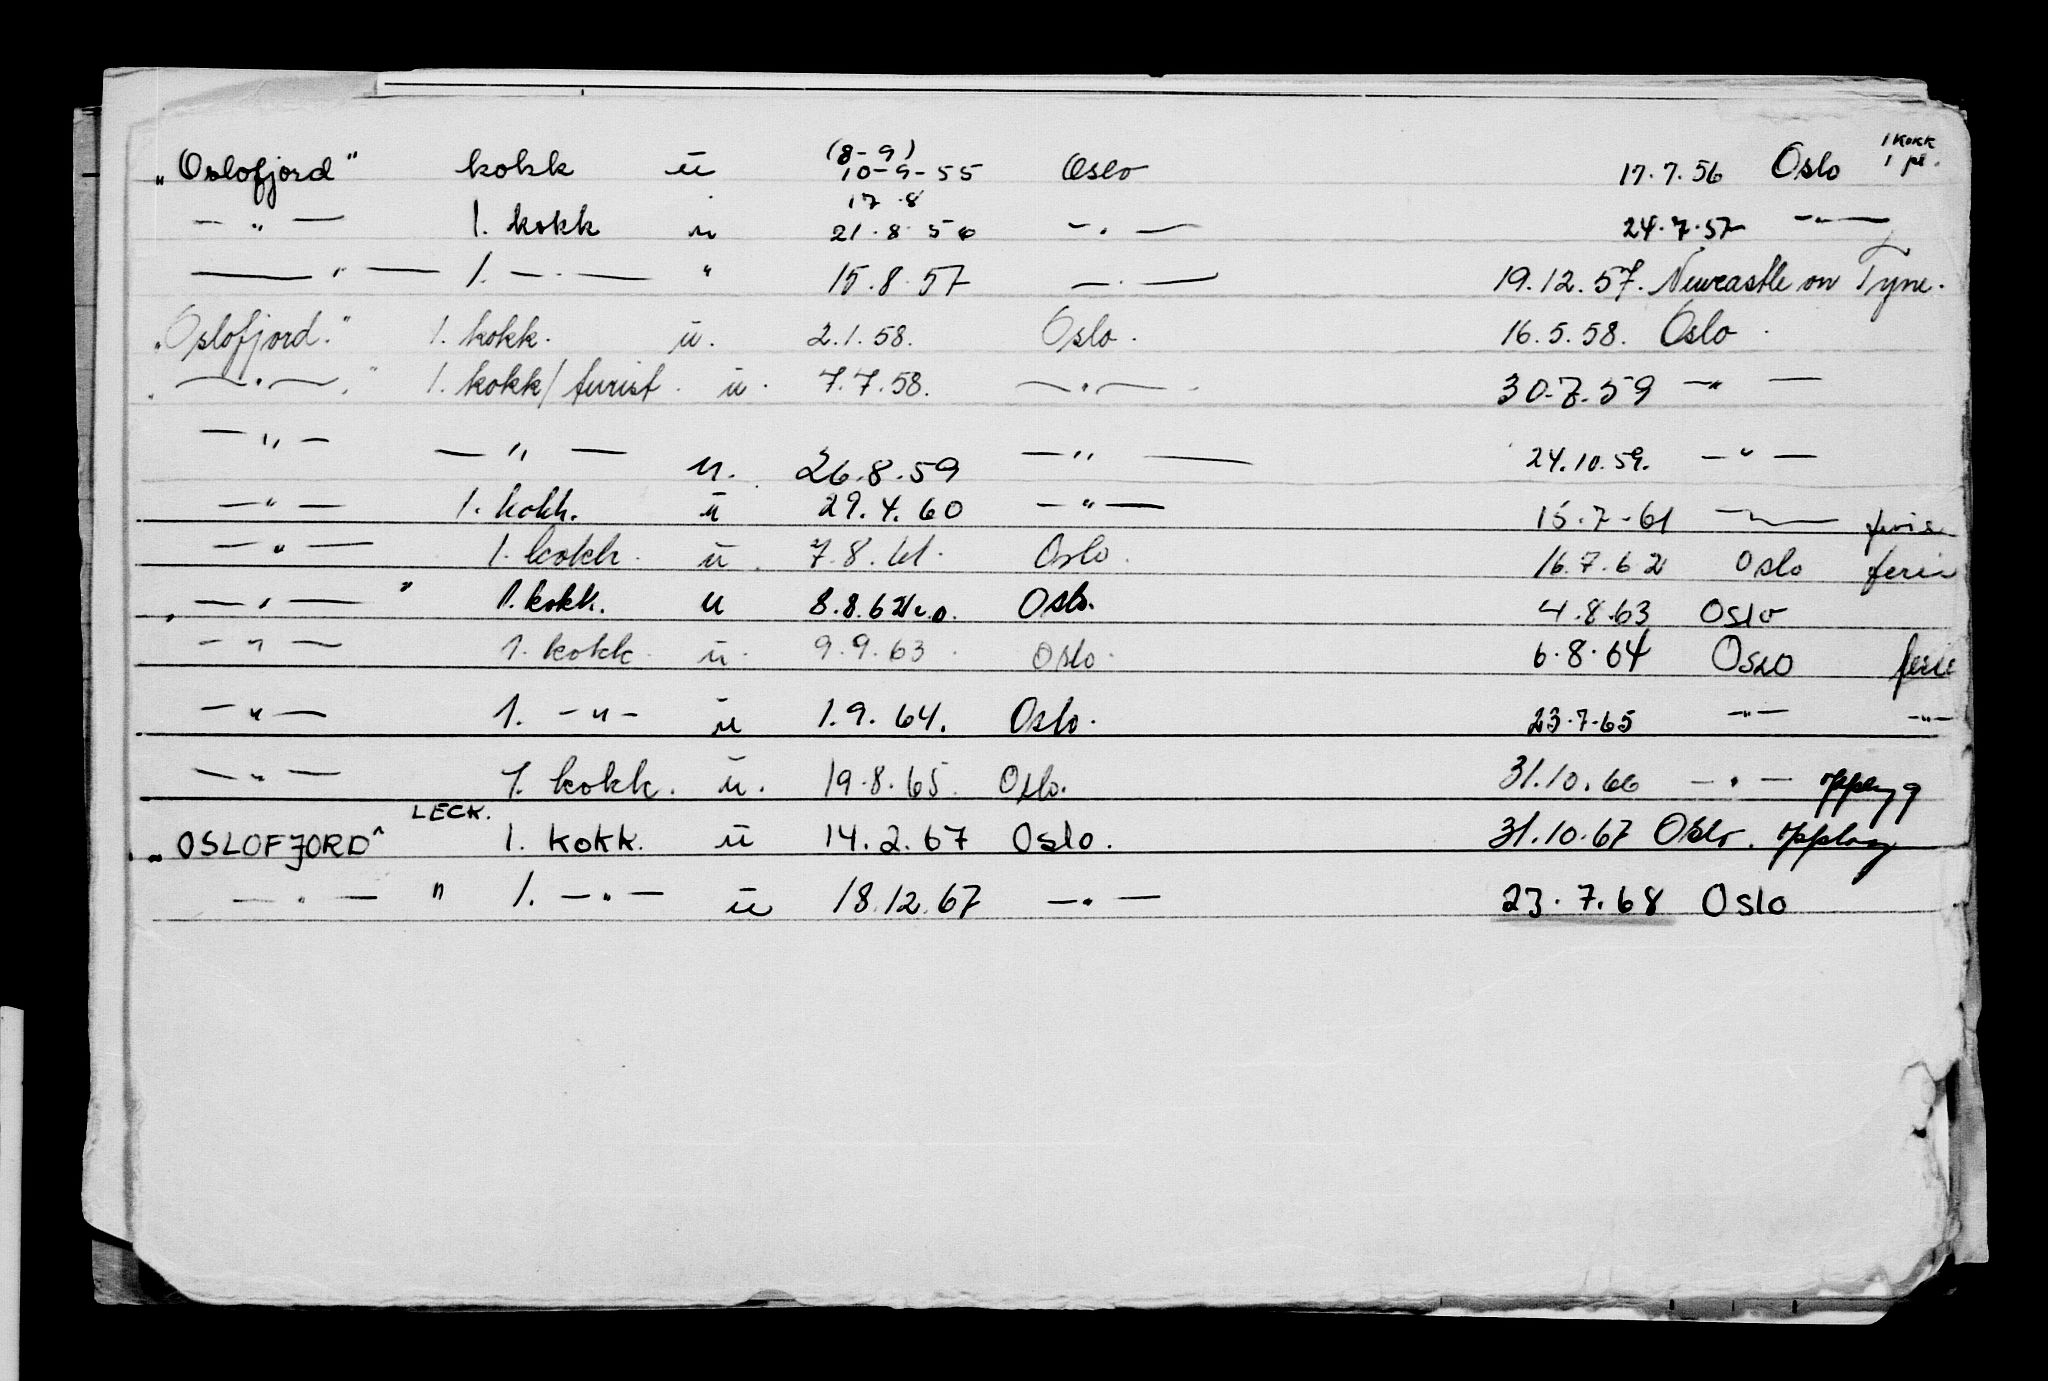 (8-9) 1 kokk
"Oslofjord" kokk ü 10-9-55 Oslo 17.7.56 Oslo 1 pl.
17.8
— " — 1. kokk u 21.8.56 — " — 24.7.57 — " —
— " — 1. — " — " 15.8.57 — " — 19.12.57. Newcastle on Tyne.
"Oslofjord." 1. kokk. ü. 2.1.58. Oslo. 16.5.58. Oslo
— " — " 1. kokk/turist. ü. 7.7.58. — " — 30.7.59 — " —
— " — — " — u. 26.8.59 — " — 24.10.59. — " —
— " — 1. kokk. ü 29.4.60 — " — 15.7-61 — " —
— " — 1. kokk. ü. 7.8.61. Oslo. 16.7.62 Oslo ferie
" — " — " 1. kokk. u 8.8.62 Oslo. 4.8.63 Oslo
— " — 1. kokk. ü. 9.9.63. Oslo. 6.8.64 Oslo ferie
— " — 1. — " — ü 1.9.64. Oslo. 23.7.65 — " — — " —
— " — 1. kokk. ü. 19.8.65. Oslo. 31.10.66 — " — opplag
LECK.
"OSLOFJORD" 1. kokk. ü 14.2.67 Oslo. 31.10.67 Oslo. opplag
— " — " 1. — " — ü 18.12.67 — " — 23.7.68 Oslo